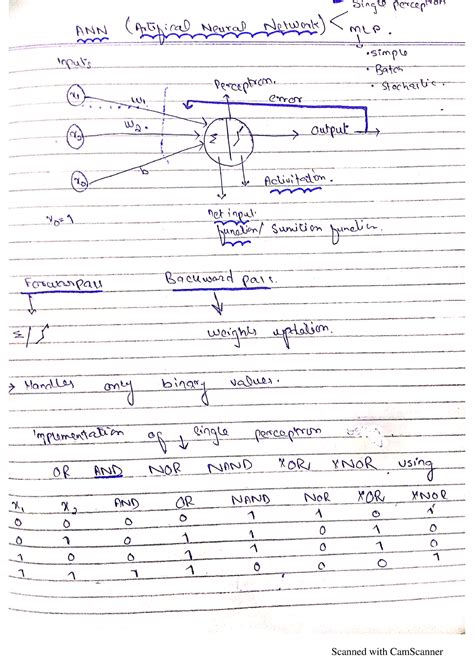 Single perceptron
ANN (Artifical Neural Network) < MLP.
• simple
• Batch
• Stochastic.
Inputs
Perceptron.
error
x₁ w₁
x₂ w₂ Σ ∫ output
x₀ b
Activitation.
x₀ = 1
net input
function/ Sumition function.
Forwarpass Backward pass.
Σ/∫ weights updation.
> Handles only binary values.
Implementation of single perceptron
OR AND NOR NAND XOR, XNOR using
x₁ x₂ AND OR NAND NOR XOR XNOR
0 0 0 0 1 1 0 1
0 1 0 1 1 0 1 0
1 0 0 1 1 0 1 0
1 1 1 1 0 0 0 1
Scanned with CamScanner